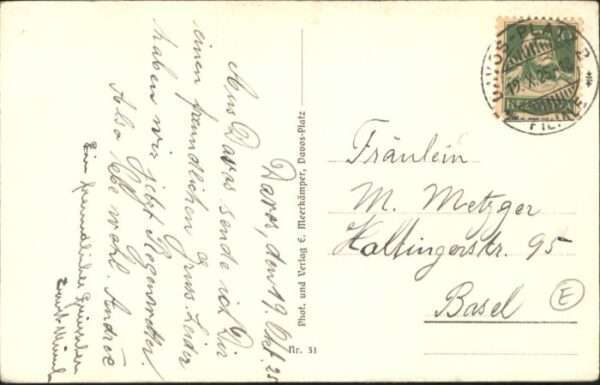 Davos, den 19. Okt. 25
Aus Davos sende ich Dir
einen freundlichen Gruss. Leider
haben wir jetzt Regenwetter.
Also lebe wohl. Andrée
Ein freundlicher
Phot. und Verlag E. Meerkämper, Davos-Platz
Nr. 31
DAVOS-PLATZ 2
Fräulein
M. Metzger
Haltingerstr. 95
Basel
E